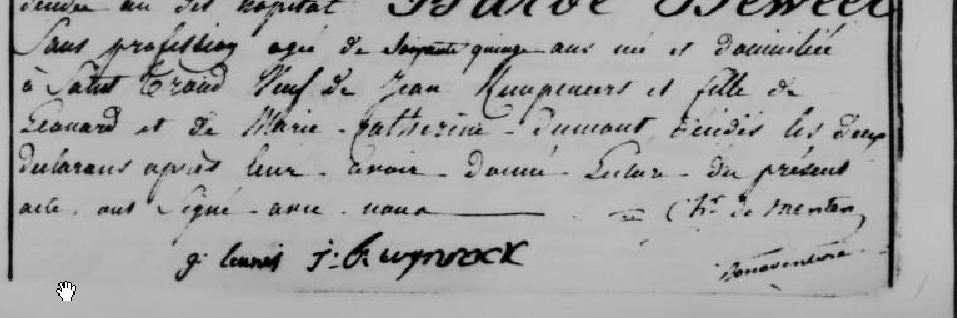 au dit hopital Barbe
Sans profession agée de Soixante quinze ans né et domiciliée
à Saint Trond Veuf de Jean Kumpeneers et fille de
Léonard et de Marie - Catherine - Dumont, les deux
declarans après leur - avoir - donné - Lecture - du présent
acte, ont Signé - avec - nous Chr de Menten
g: J:
Bonaventure